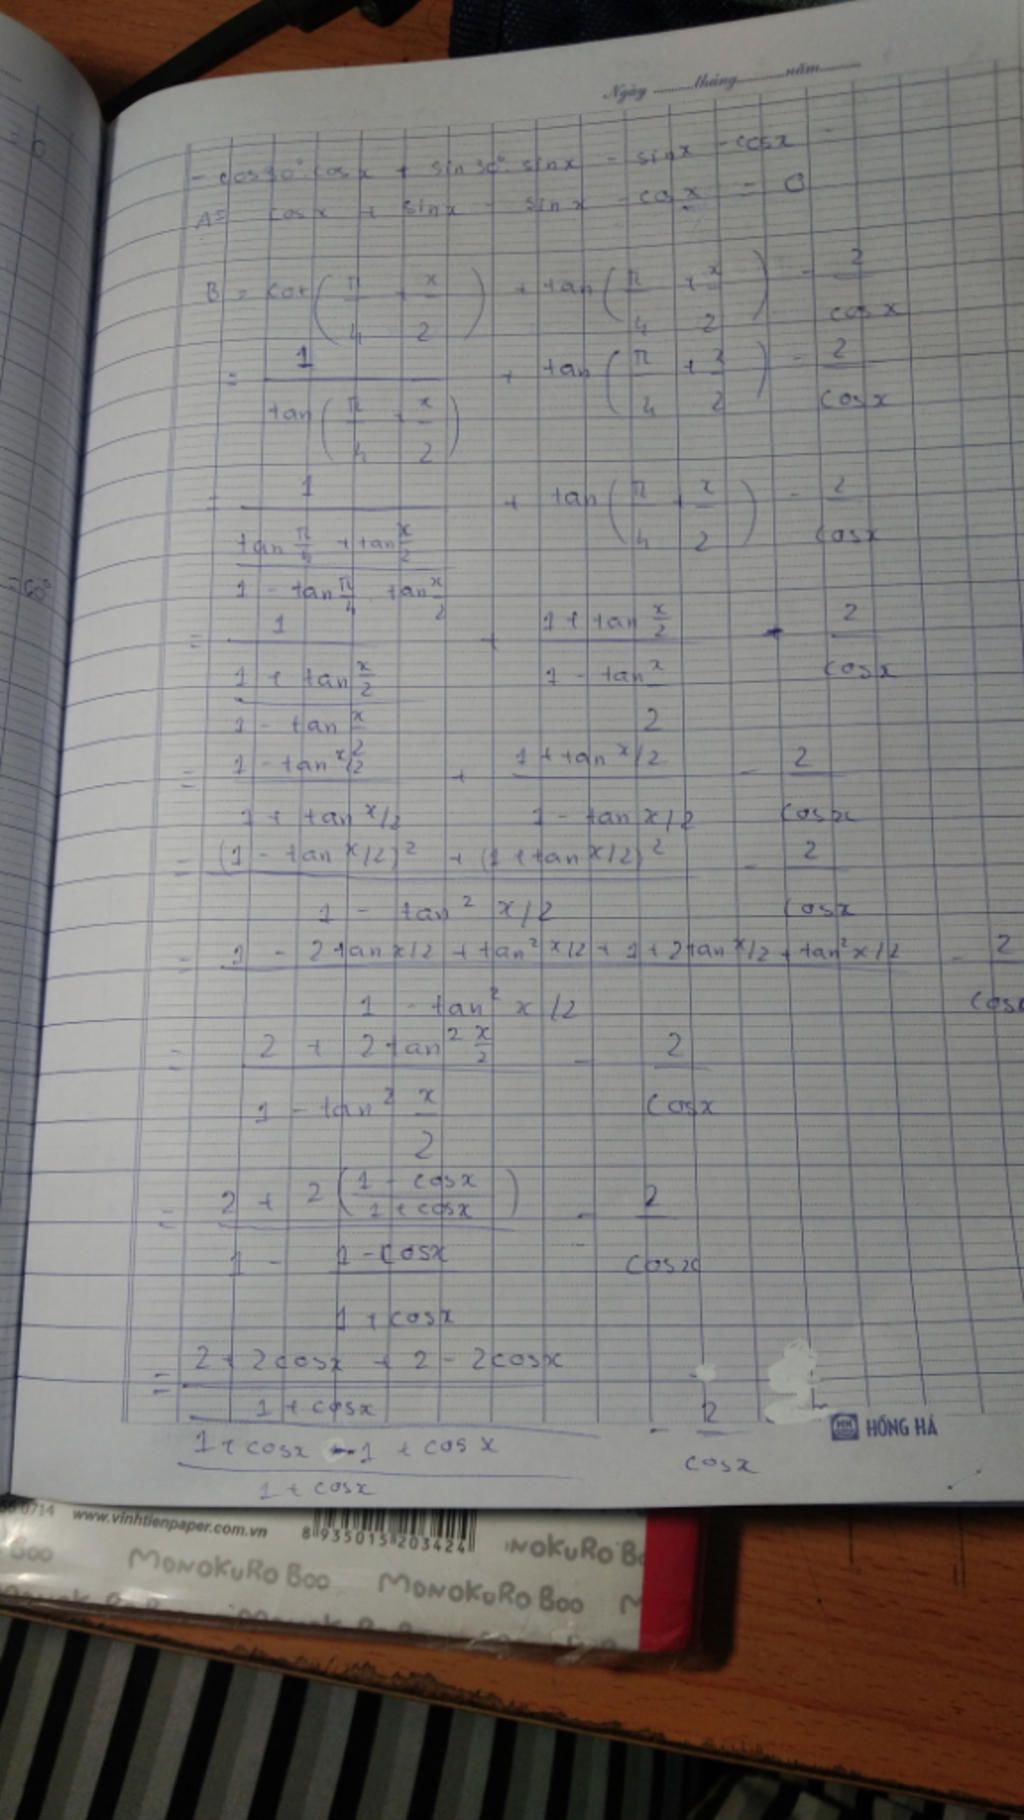 Ngày ........tháng ..........năm..........
- cos30° cosx + sin30°. sinx - sinx - cosx
A = cosx + sinx - sinx - cosx = 0
B = cot(π/4 + x/2) + tan(π/4 + x/2) - 2/cosx
= 1/tan(π/4 + x/2) + tan(π/4 + x/2) - 2/cosx
= 1/((tan π/4 + tan x/2)/(1 - tan π/4 . tan x/2)) + tan(π/4 + x/2) - 2/cosx
= 1/((1 + tan x/2)/(1 - tan x/2)) + (1 + tan x/2)/(1 - tan x/2) - 2/cosx
= (1 - tan x/2)/(1 + tan x/2) + (1 + tan x/2)/(1 - tan x/2) - 2/cosx
= ((1 - tan x/2)² + (1 + tan x/2)²)/(1 - tan² x/2) - 2/cosx
= (1 - 2tan x/2 + tan² x/2 + 1 + 2tan x/2 + tan² x/2)/(1 - tan² x/2) - 2/cosx
= (2 + 2tan² x/2)/(1 - tan² x/2) - 2/cosx
= (2 + 2((1 - cosx)/(1 + cosx)))/(1 - (1 - cosx)/(1 + cosx)) - 2/cosx
= ((2 + 2cosx + 2 - 2cosx)/(1 + cosx))/((1 + cosx - 1 + cosx)/(1 + cosx)) - 2/cosx
= 60°
HỒNG HÀ
0714 www.vinhtienpaper.com.vn
8 935015 203424
Boo MONOKURO BOO MONOKURO BOO